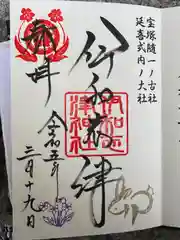 宝塚随一ノ古社
延喜式内ノ大社
伊和志津
伊和志津神社
奉拝
令和五年
三月十九日